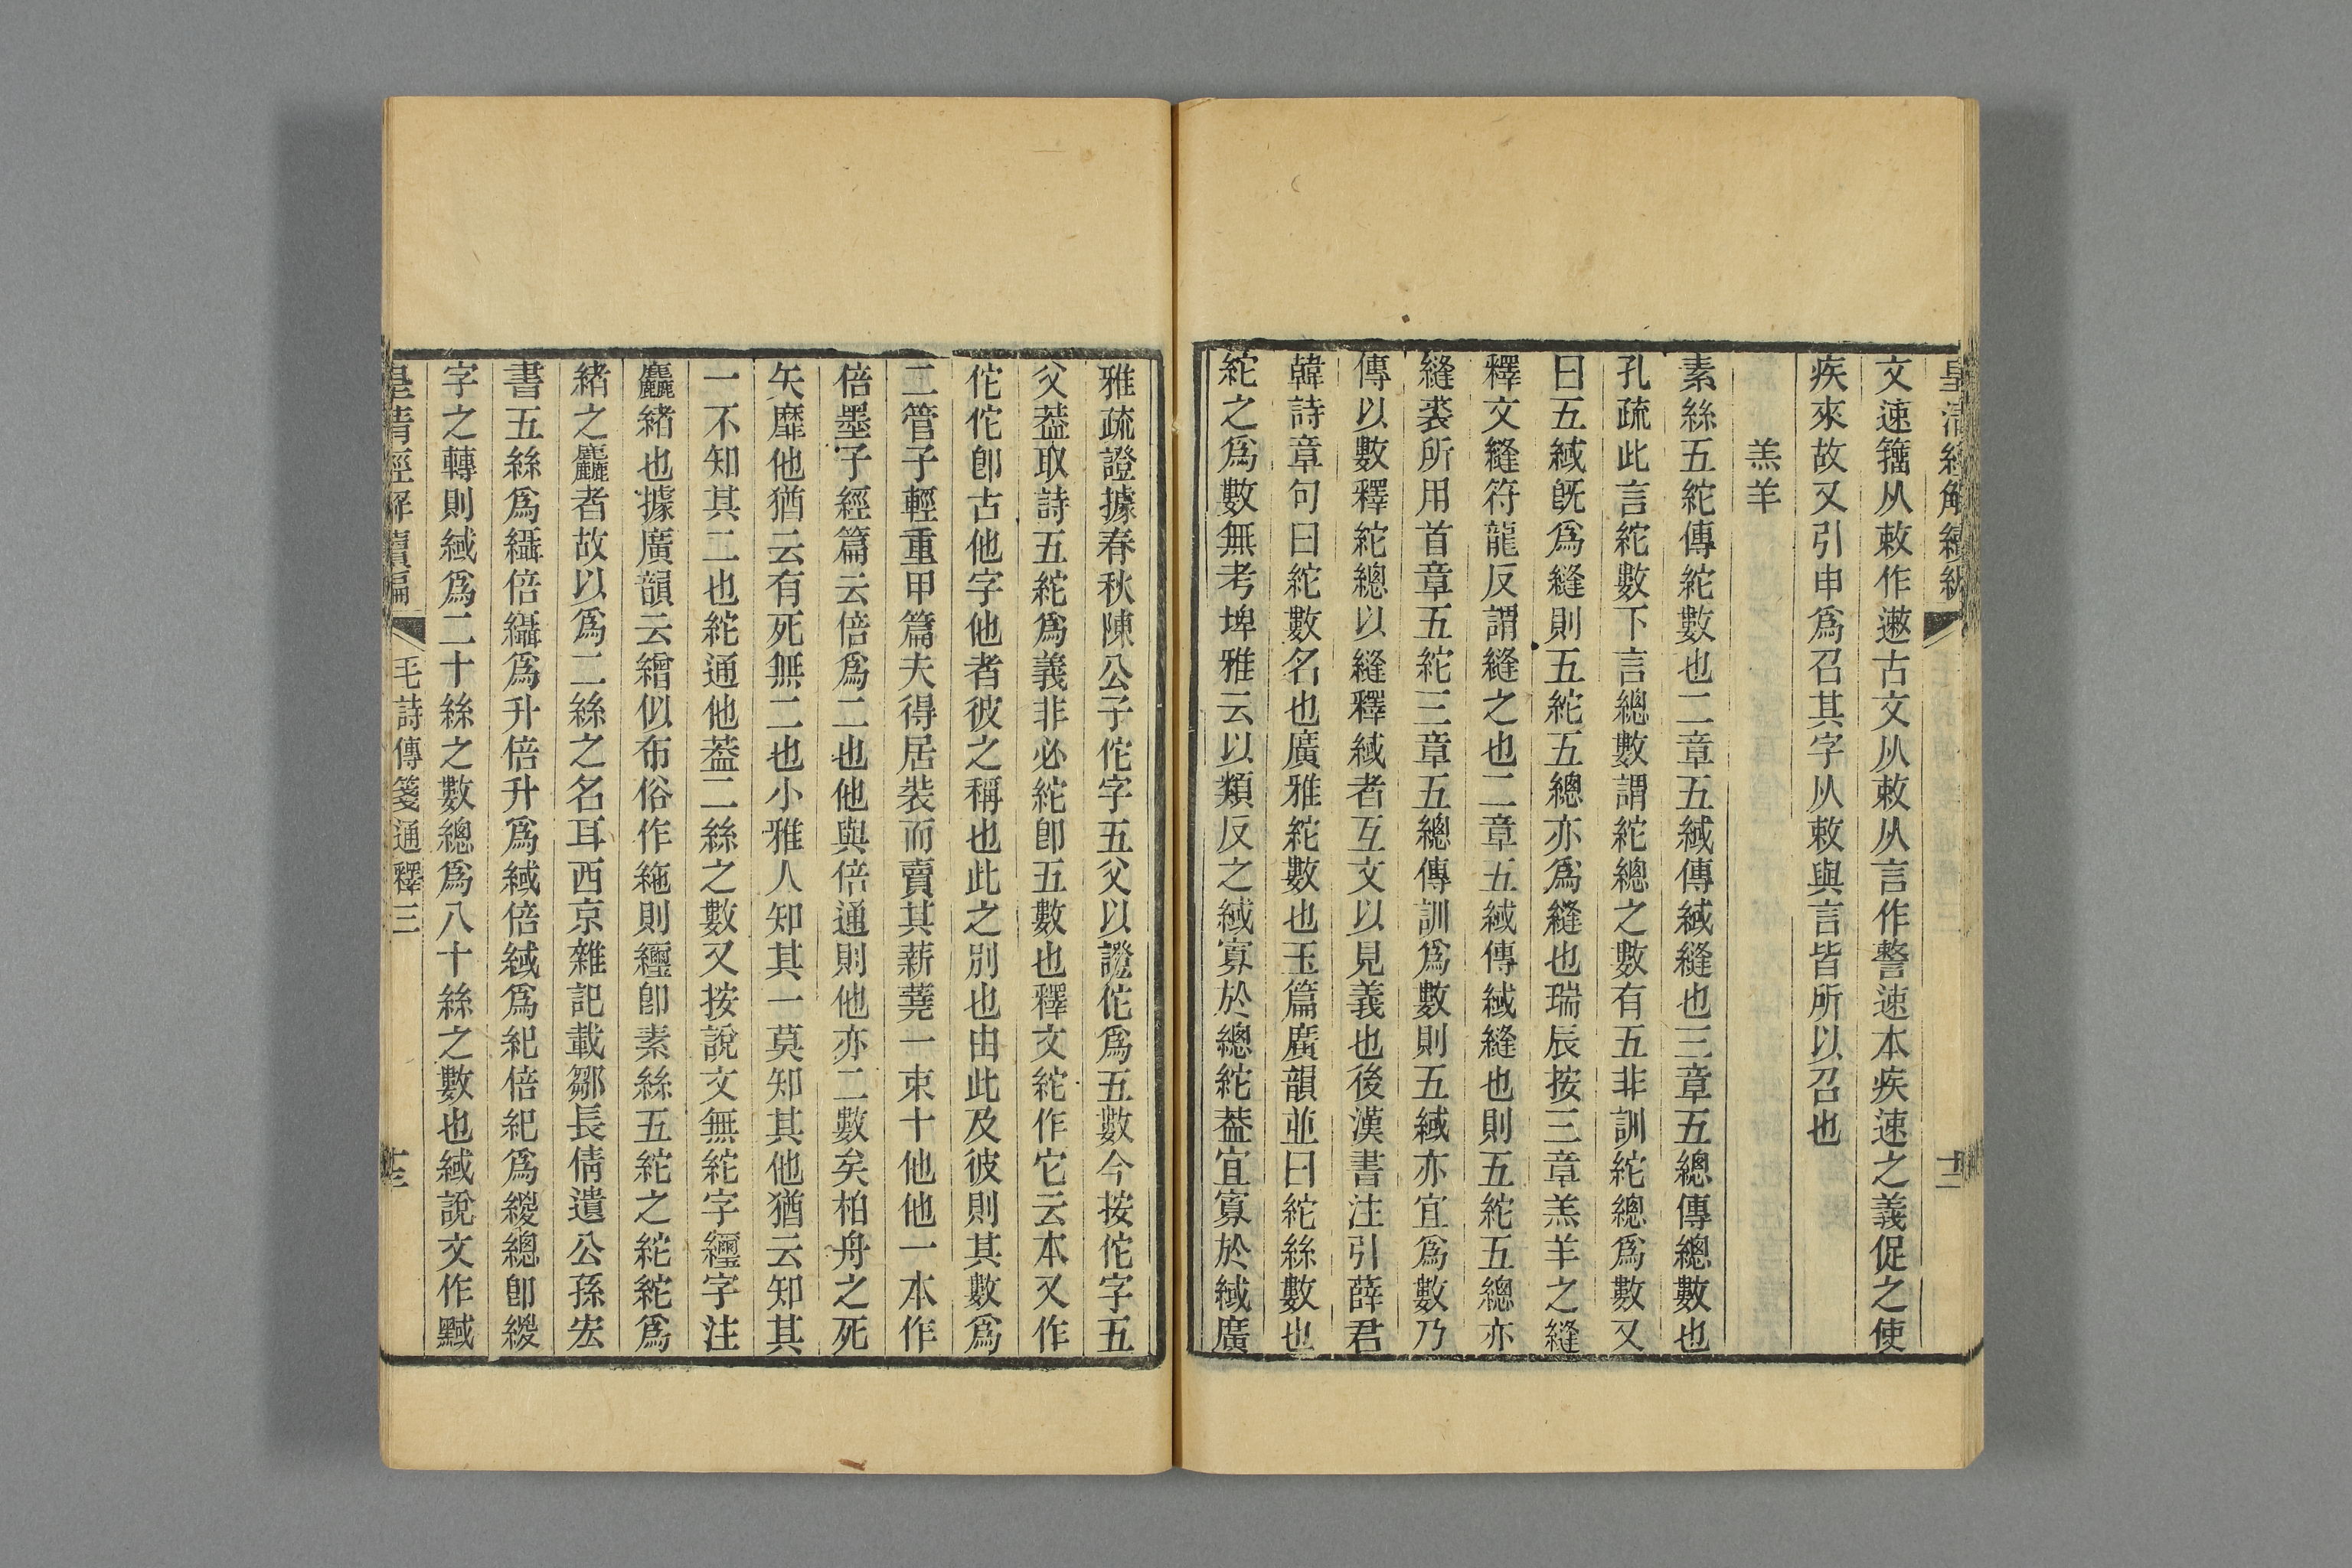 皇清經解續編
十二
文速籒从敕作遬古文从敕从言作警速本疾速之義促之使
疾來故又引申爲召其字从敕與言皆所以召也
羔羊
素絲五紽傳紽數也二章五緎傳緎縫也三章五總傳總數也
孔疏此言紽數下言總數謂紽總之數有五非訓紽總爲數又
曰五緎旣爲縫則五紽五總亦爲縫也瑞辰按三章羔羊之縫
釋文縫符龍反謂縫之也二章五緎傳緎縫也則五紽五總亦
縫裘所用首章五紽三章五總傳訓爲數則五緎亦宜爲數乃
傳以數釋紽總以縫釋緎者互文以見義也後漢書注引薛君
韓詩章句曰紽數名也廣雅紽數也玉篇廣韻並曰紽絲數也
紽之爲數無考埤雅云以類反之緎寡於總紽葢宜寡於緎廣
雅疏證據春秋陳公子佗字五父以證佗爲五數今按佗字五
父葢取詩五紽爲義非必紽卽五數也釋文紽作它云本又作
佗佗卽古他字他者彼之稱也此之別也由此及彼則其數爲
二管子輕重甲篇夫得居裝而賣其薪蕘一束十他他一本作
倍墨子經篇云倍爲二也他與倍通則他亦二數矣柏舟之死
矢靡他猶云有死無二也小雅人知其一莫知其他猶云知其
一不知其二也紽通他葢二絲之數又按說文無紽字纚字注
麤緒也據廣韻云繒似布俗作絁則纚卽素絲五紽之紽紽爲
緒之麤者故以爲二絲之名耳西京雜記載鄒長倩遺公孫宏
書五絲爲䌰倍䌰爲升倍升爲緎倍緎爲紀倍紀爲緵總卽緵
字之轉則緎爲二十絲之數總爲八十絲之數也緎說文作黬
皇清經解續編
毛詩傳箋通釋三
十三